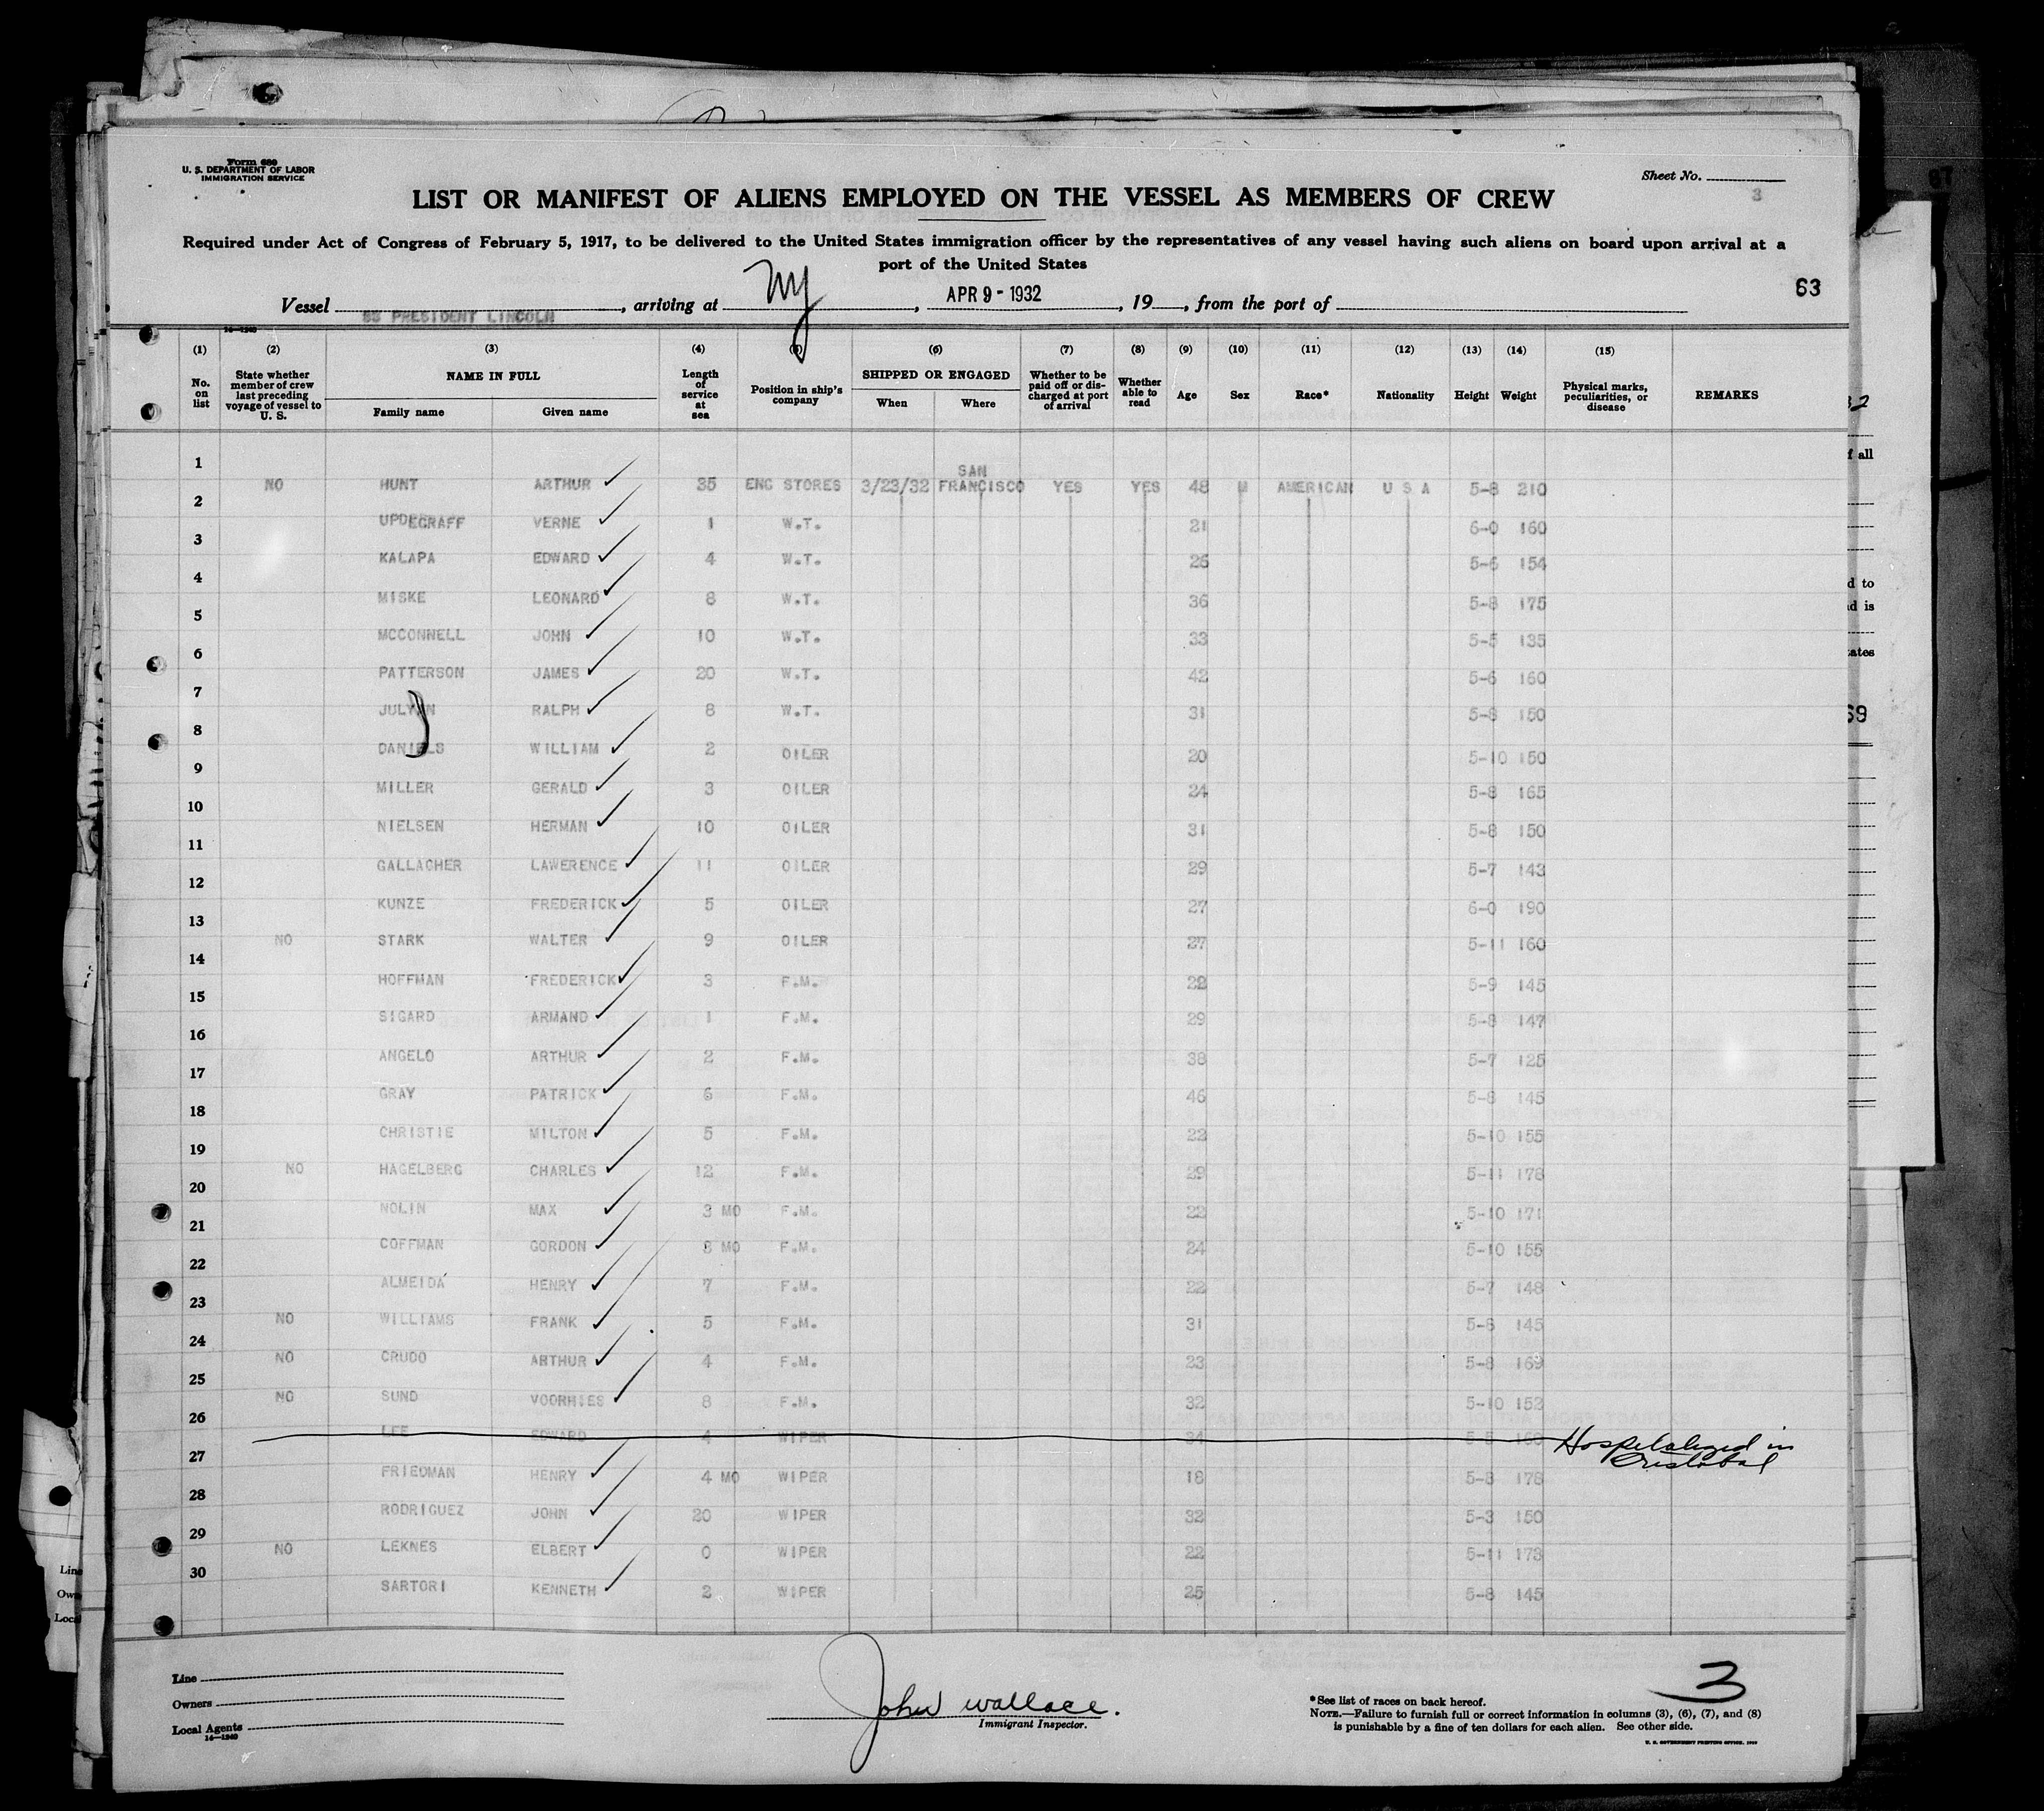 Form 689
U. S. DEPARTMENT OF LABOR
IMMIGRATION SERVICE
Sheet No.
3
LIST OR MANIFEST OF ALIENS EMPLOYED ON THE VESSEL AS MEMBERS OF CREW
Required under Act of Congress of February 5, 1917, to be delivered to the United States immigration officer by the representatives of any vessel having such aliens on board upon arrival at a
port of the United States
63
Vessel SS PRESIDENT LINCOLN, arriving at NY, APR 9 - 1932, 19 , from the port of
14—1240
(1) (2) (3) (4) (5) (6) (7) (8) (9) (10) (11) (12) (13) (14) (15)
No. on list State whether member of crew last preceding voyage of vessel to U. S. NAME IN FULL Family name Given name Length of service at sea Position in ship's company SHIPPED OR ENGAGED When Where Whether to be paid off or discharged at port of arrival Whether able to read Age Sex Race* Nationality Height Weight Physical marks, peculiarities, or disease REMARKS
1 NO HUNT ARTHUR 35 ENG STORES 3/23/32 SAN FRANCISCO YES YES 48 M AMERICAN U S A 5-8 210
2 UPDEGRAFF VERNE 1 W.T. 21 6-0 160
3 KALAPA EDWARD 4 W.T. 25 5-6 154
4 MISKE LEONARD 8 W.T. 36 5-8 175
5 MCCONNELL JOHN 10 W.T. 33 5-5 135
6 PATTERSON JAMES 20 W.T. 42 5-6 160
7 JULYAN RALPH 8 W.T. 31 5-8 150
8 DANIELS WILLIAM 2 OILER 20 5-10 150
9 MILLER GERALD 3 OILER 24 5-8 165
10 NIELSEN HERMAN 10 OILER 31 5-8 150
11 GALLAGHER LAWERENCE 11 OILER 29 5-7 143
12 KUNZE FREDERICK 5 OILER 27 6-0 190
13 NO STARK WALTER 9 OILER 27 5-11 160
14 HOFFMAN FREDERICK 3 F.M. 22 5-9 145
15 SIGARD ARMAND 1 F.M. 29 5-8 147
16 ANGELO ARTHUR 2 F.M. 38 5-7 125
17 GRAY PATRICK 6 F.M. 46 5-8 145
18 CHRISTIE MILTON 5 F.M. 22 5-10 155
19 NO HAGELBERG CHARLES 12 F.M. 29 5-11 178
20 NOLIN MAX 3 MO F.M. 22 5-10 171
21 COFFMAN GORDON 8 MO F.M. 24 5-10 155
22 ALMEIDA HENRY 7 F.M. 22 5-7 148
23 NO WILLIAMS FRANK 5 F.M. 31 5-6 145
24 NO CRUDO ARTHUR 4 F.M. 23 5-8 169
25 NO SUND VOORHIES 8 F.M. 32 5-10 152
26 LEE EDWARD 4 WIPER 34 5-5 Hospitalized in Cristobal
27 FRIEDMAN HENRY 4 MO WIPER 18 5-8 178
28 RODRIGUEZ JOHN 20 WIPER 32 5-3 150
29 NO LEKNES ELBERT 0 WIPER 22 5-11 173
30 SARTORI KENNETH 2 WIPER 25 5-8 145
Line
Owners
Local Agents
14—1240
John Wallace.
Immigrant Inspector.
3
*See list of races on back hereof.
NOTE.—Failure to furnish full or correct information in columns (3), (6), (7), and (8)
is punishable by a fine of ten dollars for each alien. See other side.